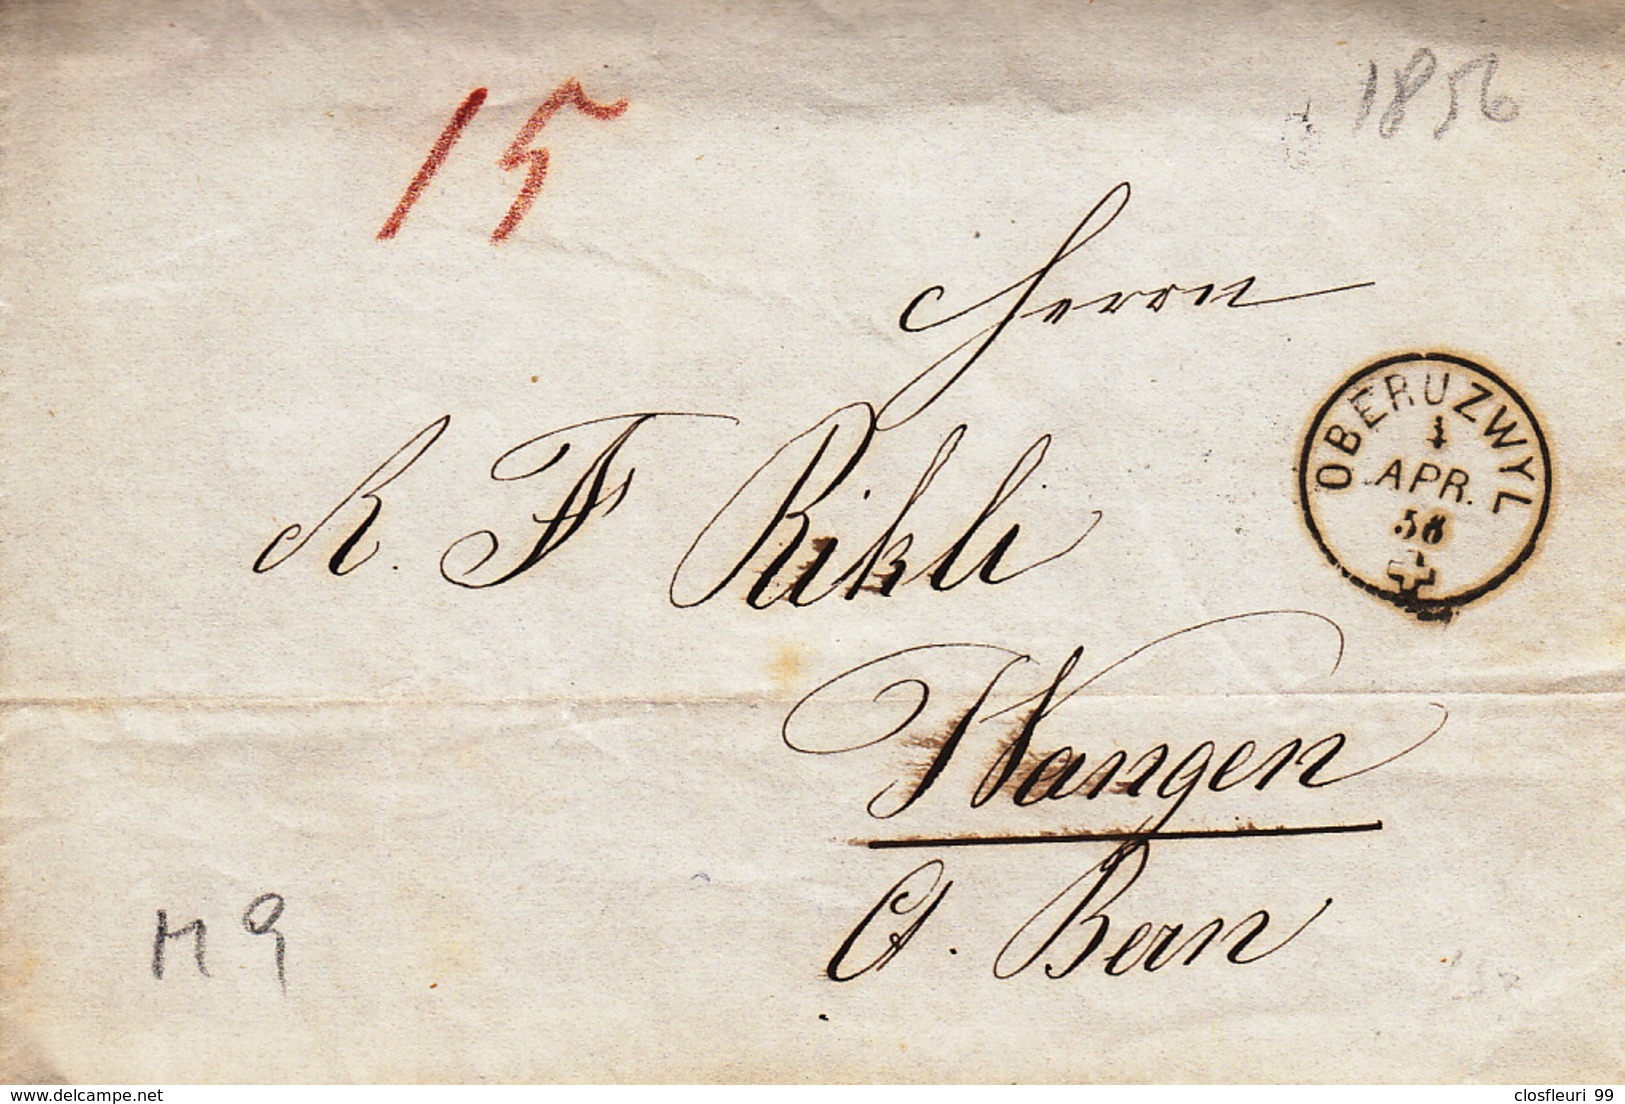 15
1856
Herrn
R. F Rikli
Wangen
Ct. Bern
OBERUZWYL
1
APR.
56
M 9
delcampe.net
closfleuri 99